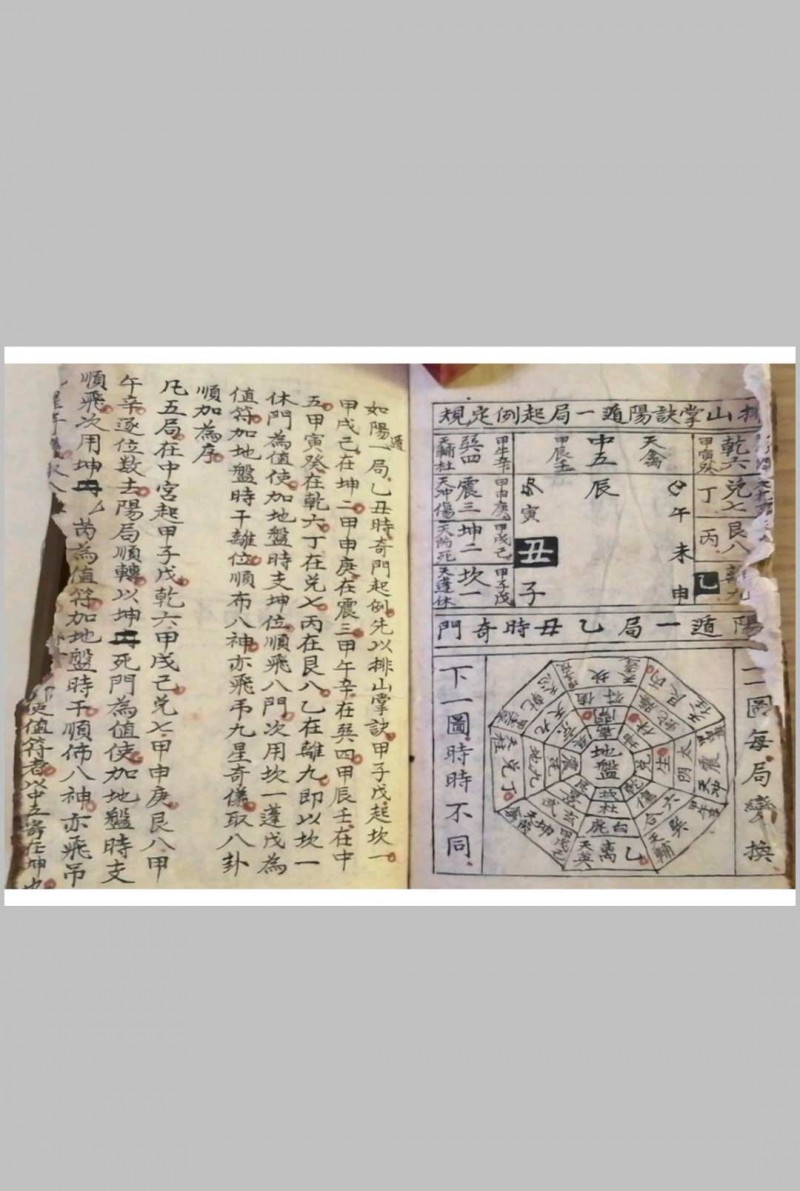 排山掌訣陽遁一局起例定規
乾六
甲寅癸
兌七
丁
艮八
丙
離九
乙
天禽
中五
甲辰壬
辰
午
未
申
寅
丑
子
甲午辛
巽四
天輔杜
甲申庚
震三
天沖傷
甲戌己
坤二
天芮死
甲子戊
坎一
天蓬休
陽遁一局乙丑時奇門
二圖每局變換
下一圖時時不同
地盤
值符
太明
六合
白虎
九地
坎
震
巽
離
天英
乙
坤
兌
丁
天柱
天輔
休
生
傷
杜
如陽遁一局乙丑時奇門起例先以排山掌訣甲子戊起坎一
甲戌己在坤二甲申庚在震三甲午辛在巽四甲辰壬在中
五甲寅癸在乾六丁在兌七丙在艮八乙在離九即以坎一
休門為值使加地盤時支坤位順飛八門次用坎一蓬戊為
值符加地盤時干離位順布八神亦飛弔九星奇儀取八卦
順加為序
凡五局在中宮起甲子戊乾六甲戌己兌七甲申庚艮八甲
午辛逐位數去陽局順轉以坤死門為值使加地盤時支
順飛次用坤芮為值符加地盤時干順佈八神亦飛吊
使值符者以中五寄在坤也